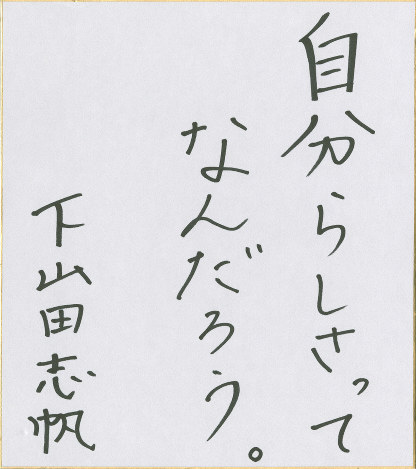 自分らしさって
なんだろう。
下山田志帆